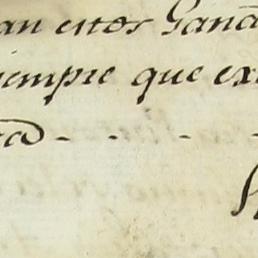 an estos Gana
iempre que ex